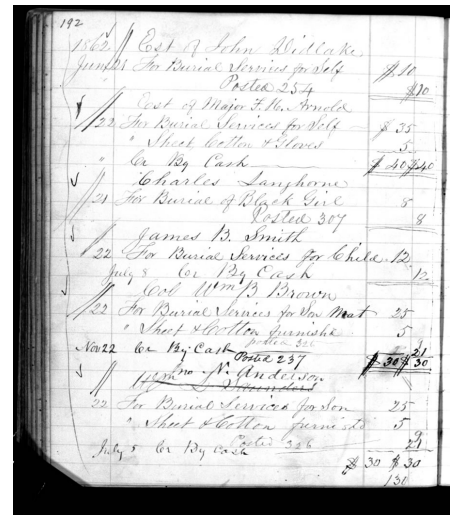 192
1862 Est of John Didlake
June 21 For Burial Services for Self $10
Posted 254 $10
Est of Major F. H. Arnold
22 For Burial Services for Self $35
" Sheet Cotton & Gloves 5
" Cr By Cash $40 $40
Charles Langhorne
21 For Burial of Black Girl 8
Posted 307 8
James B. Smith
22 For Burial Services for Child 12
July 8 Cr By Cash 12
Col Wm B Brown
22 For Burial Services for Son 25
" Sheet & Cotton furnishd 5
posted 326 21
Nov 22 Cr By Cash Posted 237 $30 $30
N. Anderson
Saunders
22 For Burial Services for Son 25
" Sheet & Cotton furnishd 5
Posted 326
July 5 Cr By Cash
$30 $30
130